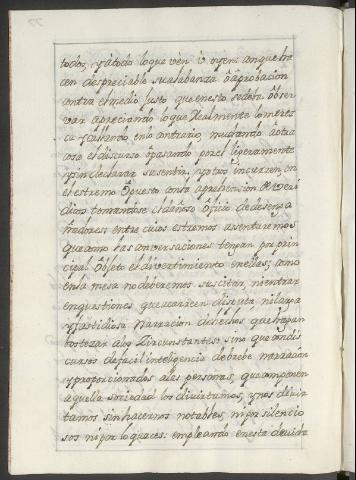 todos, y átodo loque vèn ù oyen: conque ha
cen despreciable sualabanza ò àprobacion
contra el medio justo que enesto sedebe obser
var apreciando loque Realmente lo meres
ca y callando en lo contrario, mudando áotra
cosa el discurso ò pasando por el ligeramente
y sin declarar susentir. y otros incurren en
el estremo ôpuesto conla aprehension de Veri
dicos tomandose el dañoso ôficio de desenga
ñadores: entre cuios estremos asentaremos
que como las conversaciones tengan por prin
cipal ôbjeto el divertimiento en ellas; como
en la mesa no deberemos suscitar, ni entrar
en questiones que acarreen disputa ni larga
y fastidiosa Narracion de hechos que hagan
bostezar alos Zircunstantes: sino que con dis
cursos de facil inteligencia debrebe narracion
y proporcionados alas personas, que componen
aquella sociedad los divirtamos, y nos divir
tamos sin hacernos notables, ni por silencio
sos ni por loquaces: empleando en esta devida